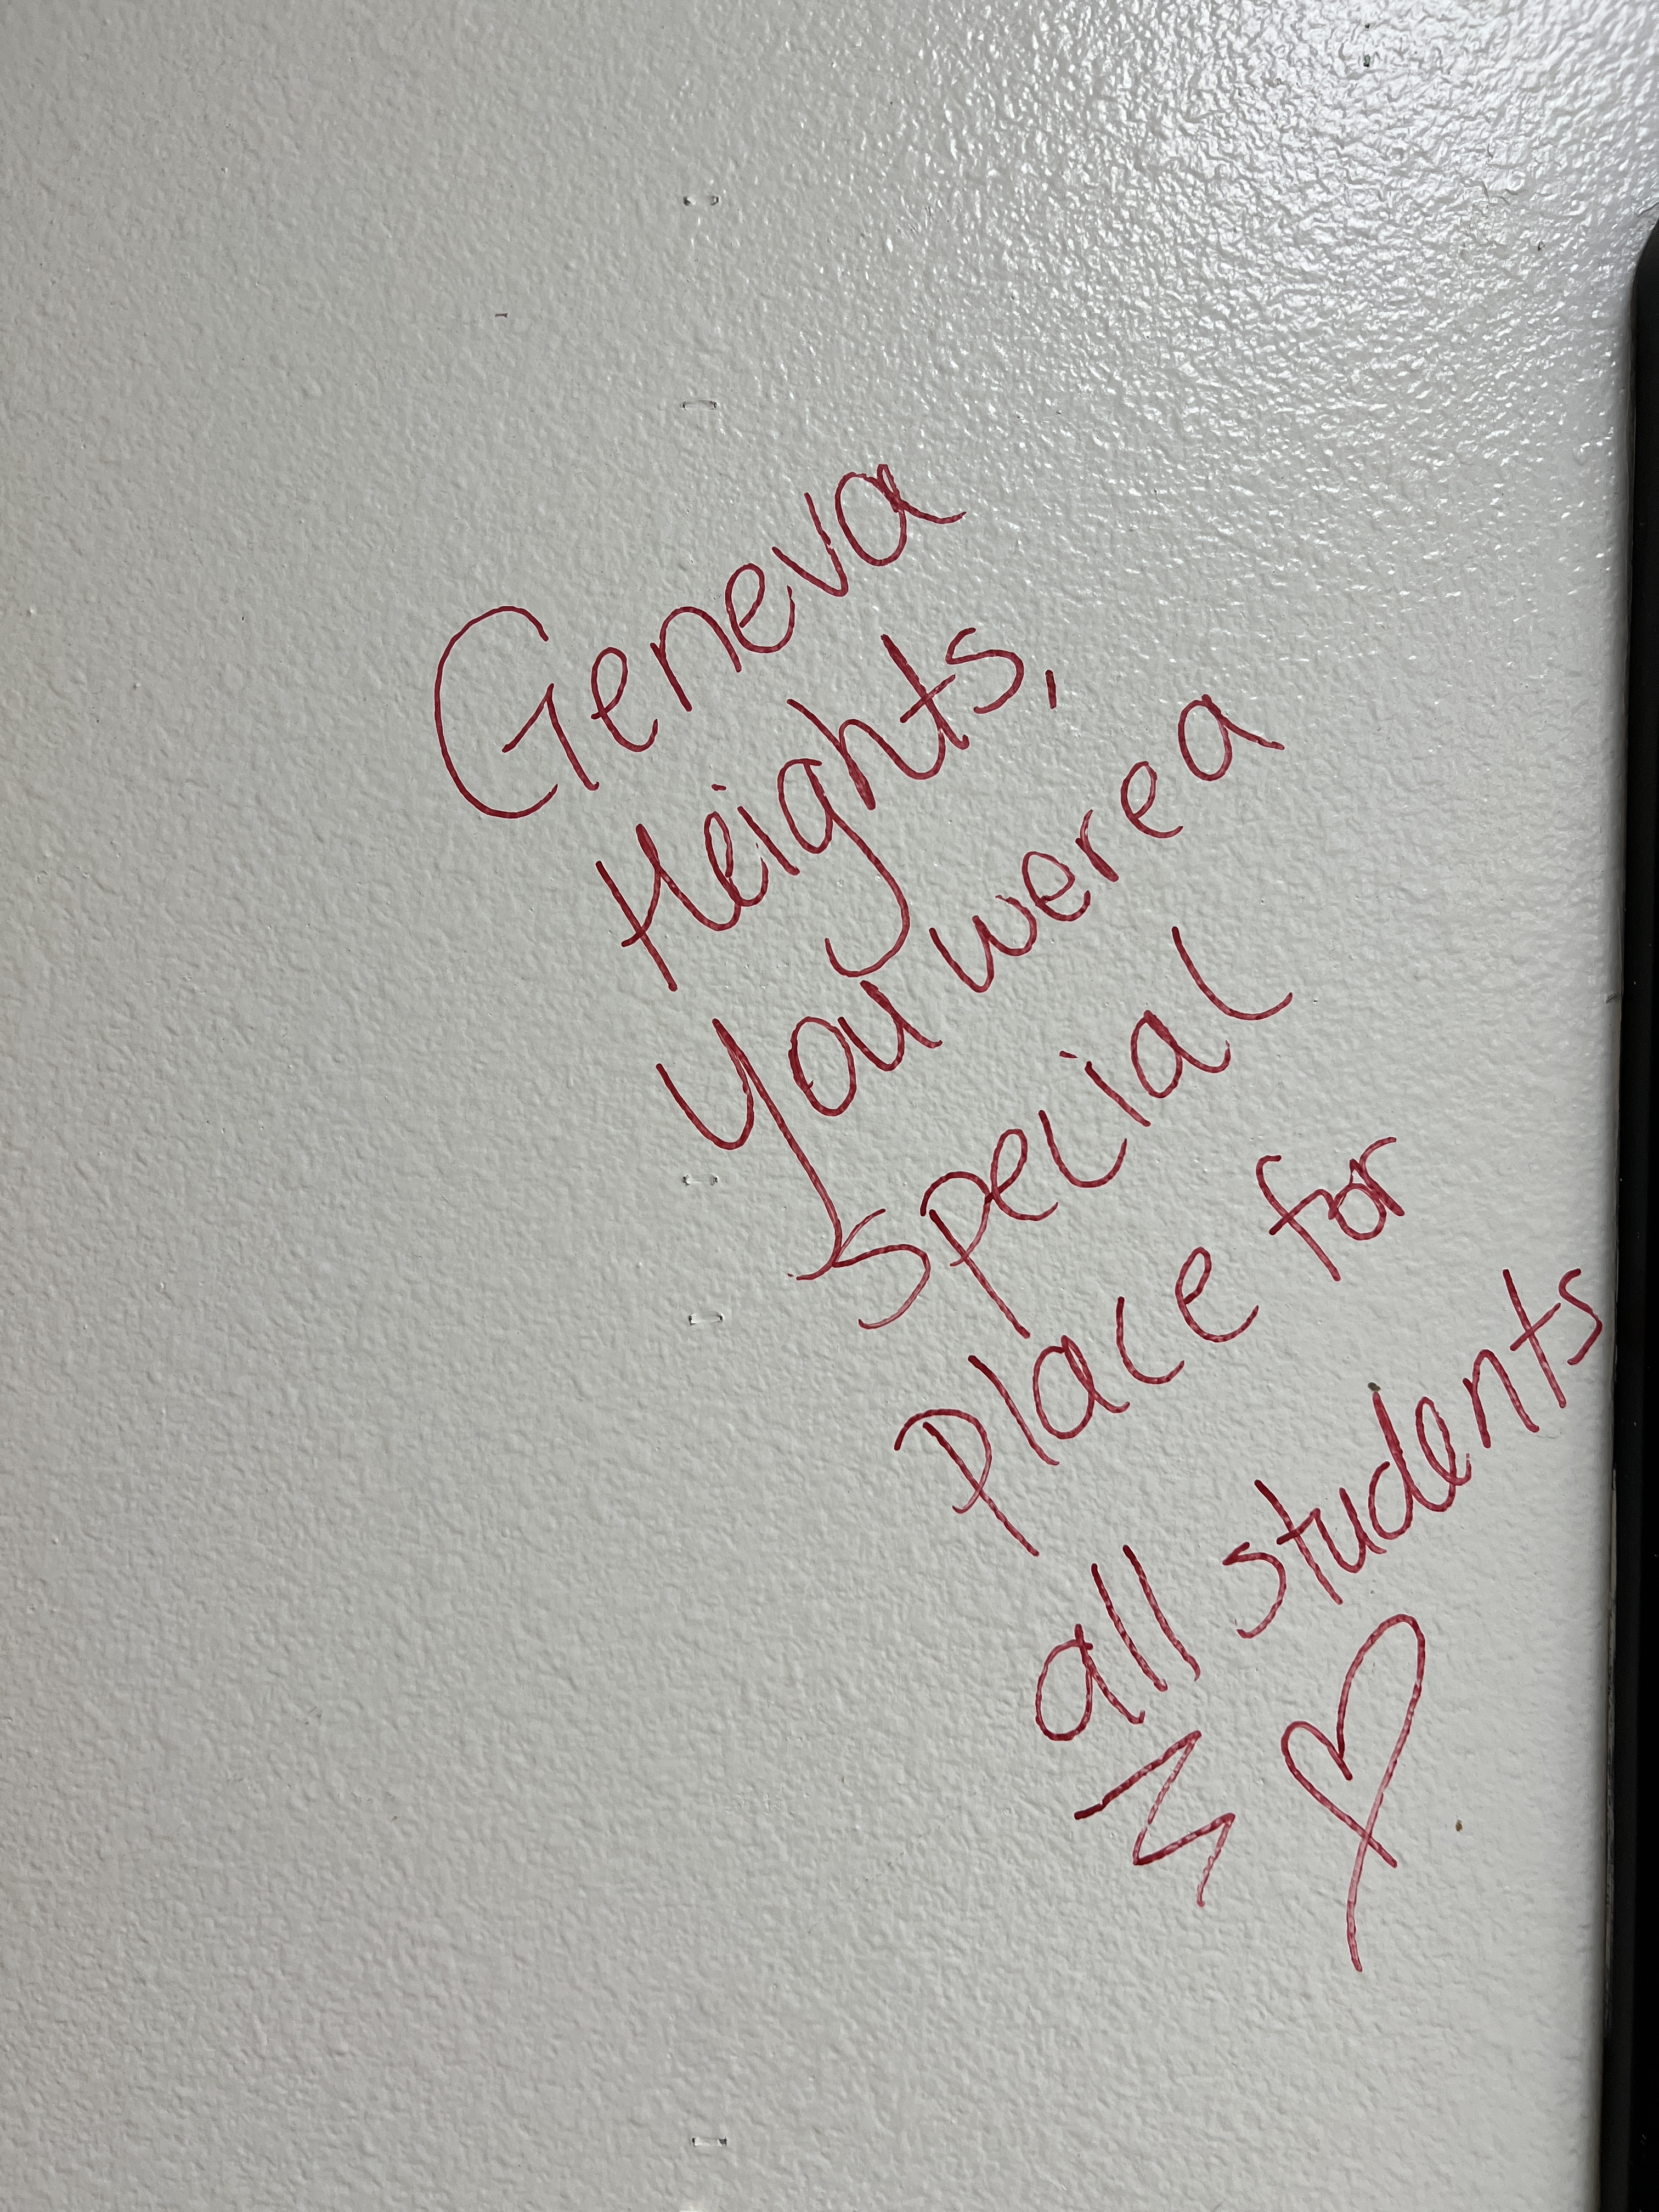 Geneva
Heights,
You were a
special
place for
all students
M ♡